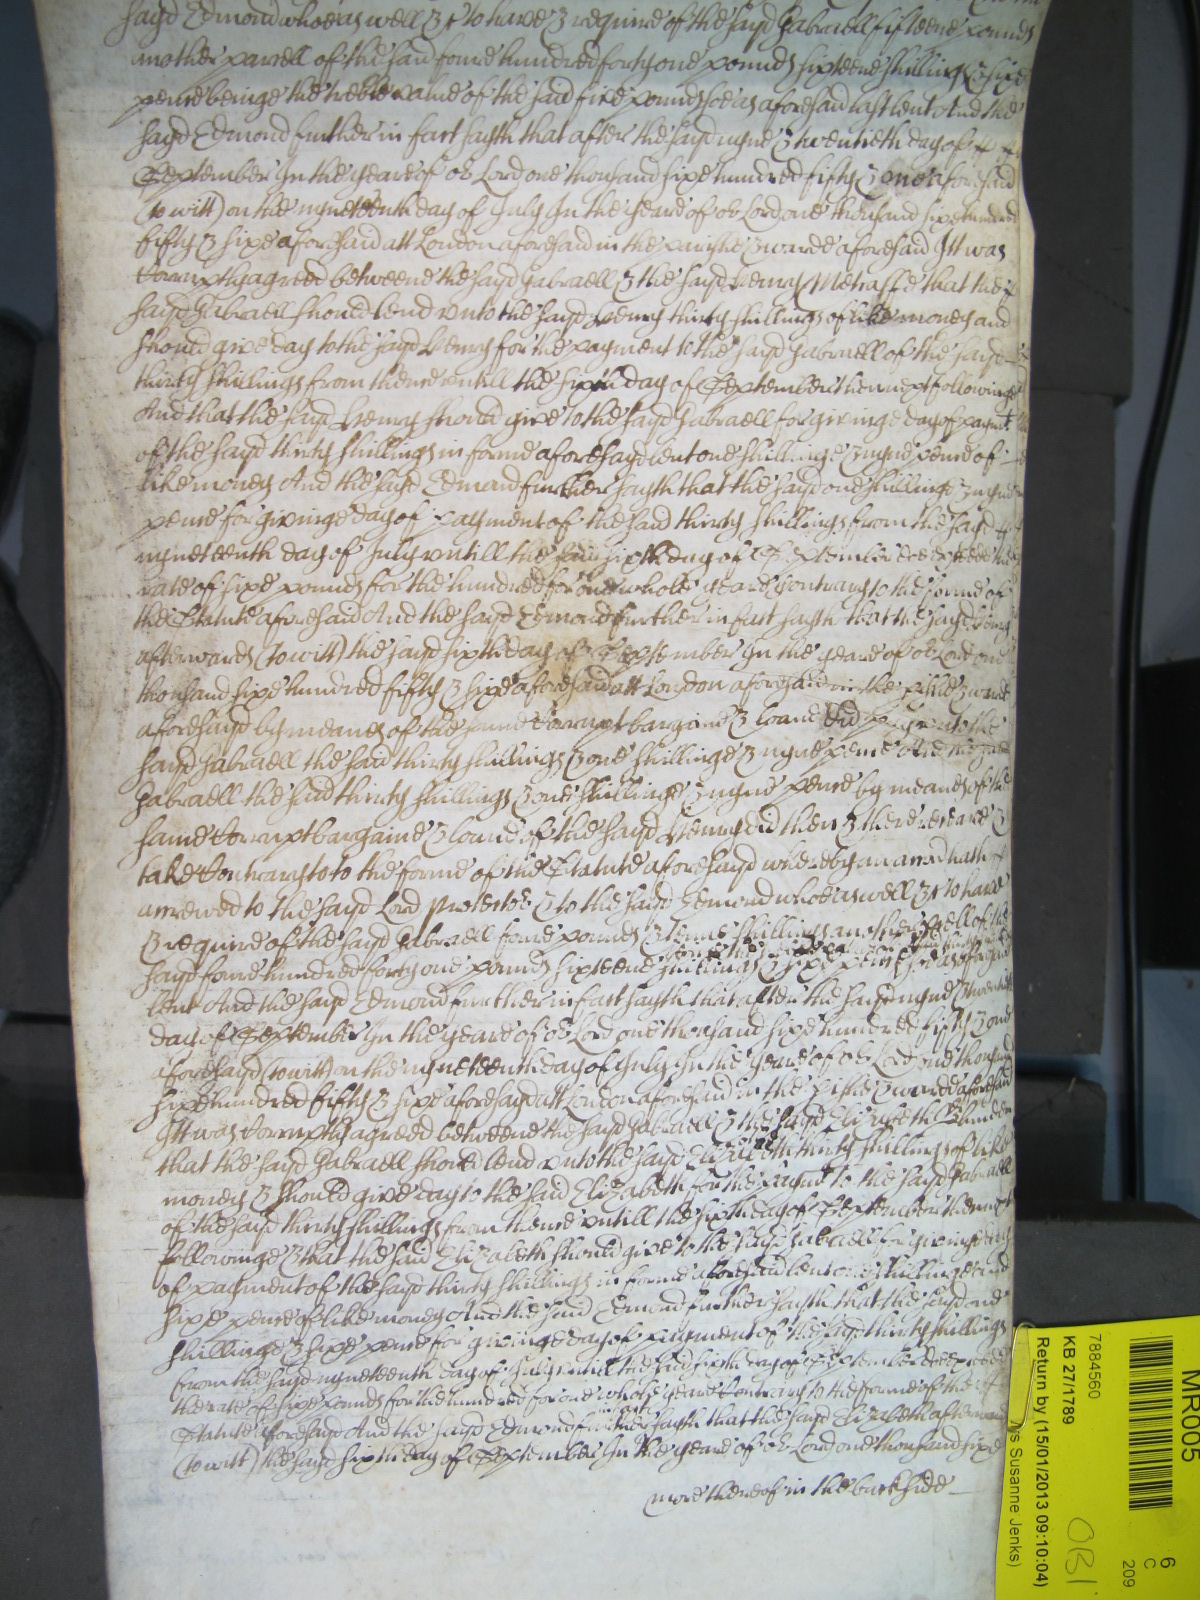 sayd Edmond who as well &c to have & require of the sayd Gabraell fifteene pounds
another parcell of the said foure hundred forty one pounds sixteene shillings & sixe
pence beinge the treble value of the said five pounds soe as aforesaid last lent And the
sayd Edmond further in fact sayth that after the sayd nyne & twentieth day of
September In the yeare of our Lord one thousand sixe hundred fifty & one aforesaid
(to witt) on the nyneteenth day of July In the yeare of our Lord one thousand sixe hundred
fifty & sixe aforesaid att London aforesaid in the parishe & warde aforesaid Itt was
Corruptly agreed betweene the sayd Gabraell & the sayd Henry Metcalfe that the
sayd Gabraell should lend unto the sayd Henry thirty shillings of like money and
should give day to the sayd Henry for the payment to the sayd Gabraell of the sayd
thirty shillings from thence untill the sixth day of September then next followinge
And that the sayd Henry should give to the sayd Gabraell for givinge day of paymt
of the sayd thirty shillings in forme aforesayd lent one shillinge & nyne pence of
like money And the sayd Edmond further sayth that the sayd one shillinge & nyne
pence for givinge day of payment of the said thirty shillings from the sayd
nyneteenth day of July untill the said sixth day of September doe exceede the
rate of sixe pounds for the hundred for one whole yeare Contrary to the forme of
the Statute aforesaid And the sayd Edmond further in fact sayth that the sayd Henry
afterwards (to witt) the sayd sixth day of September In the yeare of our Lord one
thousand sixe hundred fifty & sixe aforesaid att London aforesaid in the pishe & warde
aforesayd by meanes of the same Corrupt bargaine & loane did pay unto the
sayd Gabraell the said thirty shillings & one shillinge & nyne pence
Gabraell the said thirty shillings & one shillinge & nyne pence by meanes of the
same Corrupt bargaine & loane of the sayd Henry did then & there receave &
take Contrary to to the forme of the Statute aforesayd whereby an accon hath
accrewed to the sayd Lord Protector & to the sayd Edmond who as well &c to have
& require of the sayd Gabraell foure pounds & tenne shillings another pcell of the
sayd foure hundred forty one pounds sixteene shillings & sixe pence soe as aforesayd
lent And the sayd Edmond further in fact sayth that after the sayd nyne & twentith
day of September In the yeare of our Lord one thousand sixe hundred fifty & one
aforesayd (to witt) on the nyneteenth day of July In the yeare of our Lord one thousand
sixe hundred fifty & sixe aforesayd att London aforesaid in the pishe & warde aforesaid
Itt was Corruptly agreed betweene the sayd Gabraell & the sayd Elizabeth
that the sayd Gabraell should lend unto the sayd Elizabeth thirty shillings of like
money & should give day to the said Elizabeth for the paymt to the sayd Gabraell
of the sayd thirty shillings from thence untill the sixth day of September then next
followinge & that the said Elizabeth should give to the sayd Gabraell for givinge day
of payment of the sayd thirty shillings in forme aforesaid lent one shillinge and
sixe pence of like money And the said Edmond further sayth that the sayd one
shillinge & sixe pence for givinge day of payment of the sayd thirty shillings
from the sayd nyneteenth day of July untill the said sixth day of September doe exceede
the rate of sixe pounds for the hundred for one whole yeare Contrary to the forme of the
Statute aforesayd And the sayd Edmond further in fact sayth that the sayd Elizabeth afterwards
(to witt) the sayd sixth day of September In the yeare of our Lord one thousand sixe
more thereof in the backside
MR005
6
C
209
7884560
KB 27/1789
Return by (15/01/2013 09:10:04)
Susanne Jenks)
OB1